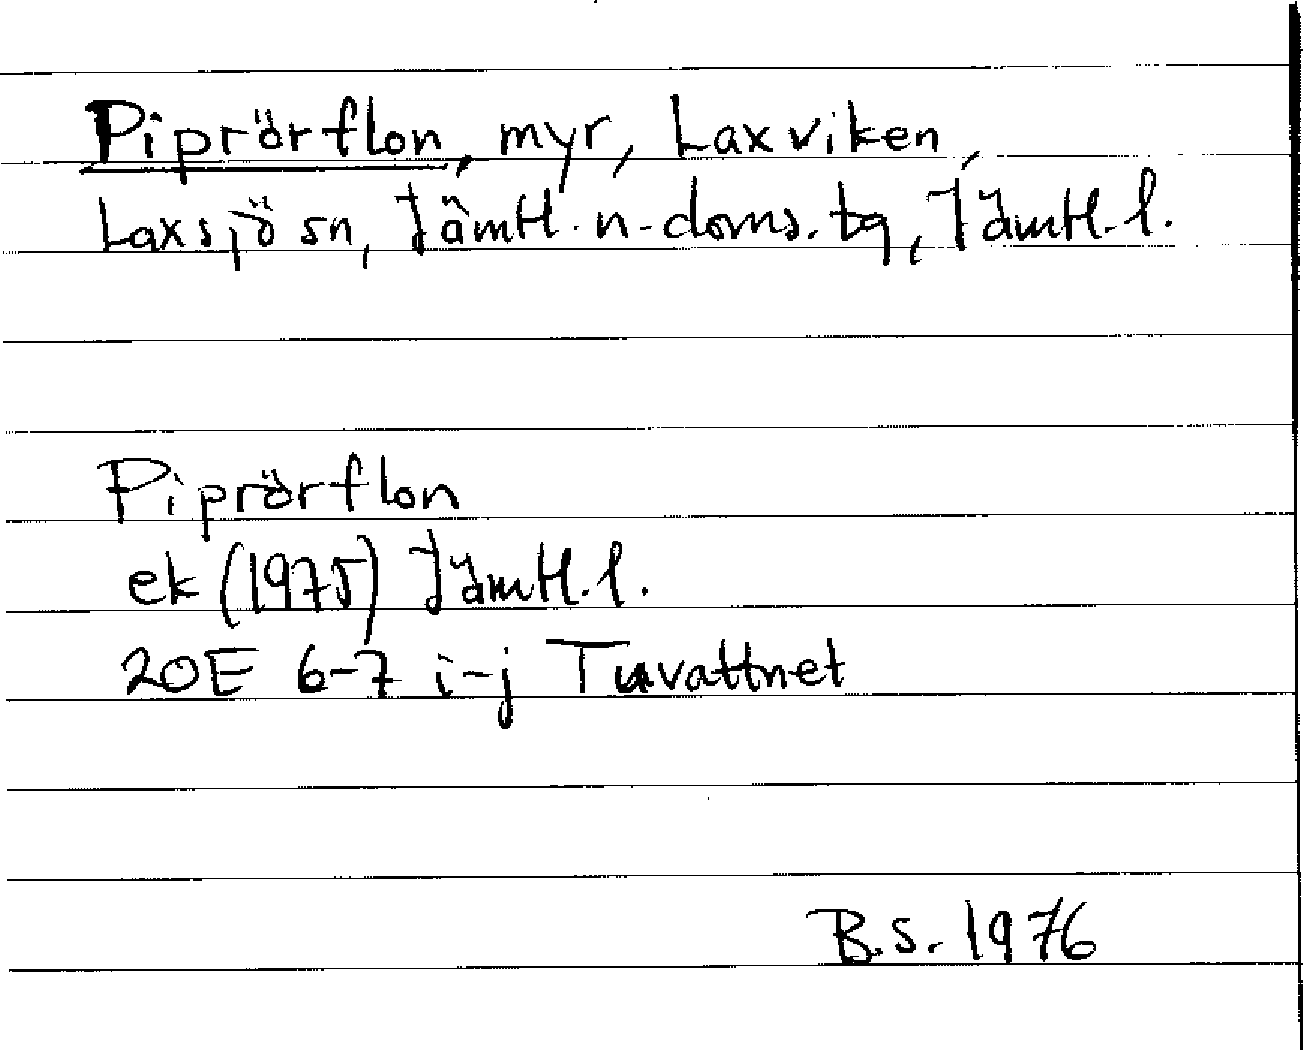 Piprörflon, myr, Laxviken,
Laxsjö sn, Jämtl. n-doms. tg, Jämtl. l.
Piprörflon
ek (1975) Jämtl. l.
20E 6-7 i-j Tuvattnet
B.S. 1976